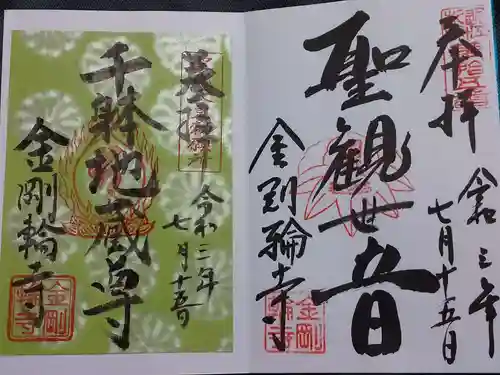 奉拝
聖観世音
金剛輪寺
令和三年
七月十五日
金剛
輪寺
奉拝
千躰地蔵尊
金剛輪寺
令和三年
七月十五日
金剛
輪寺